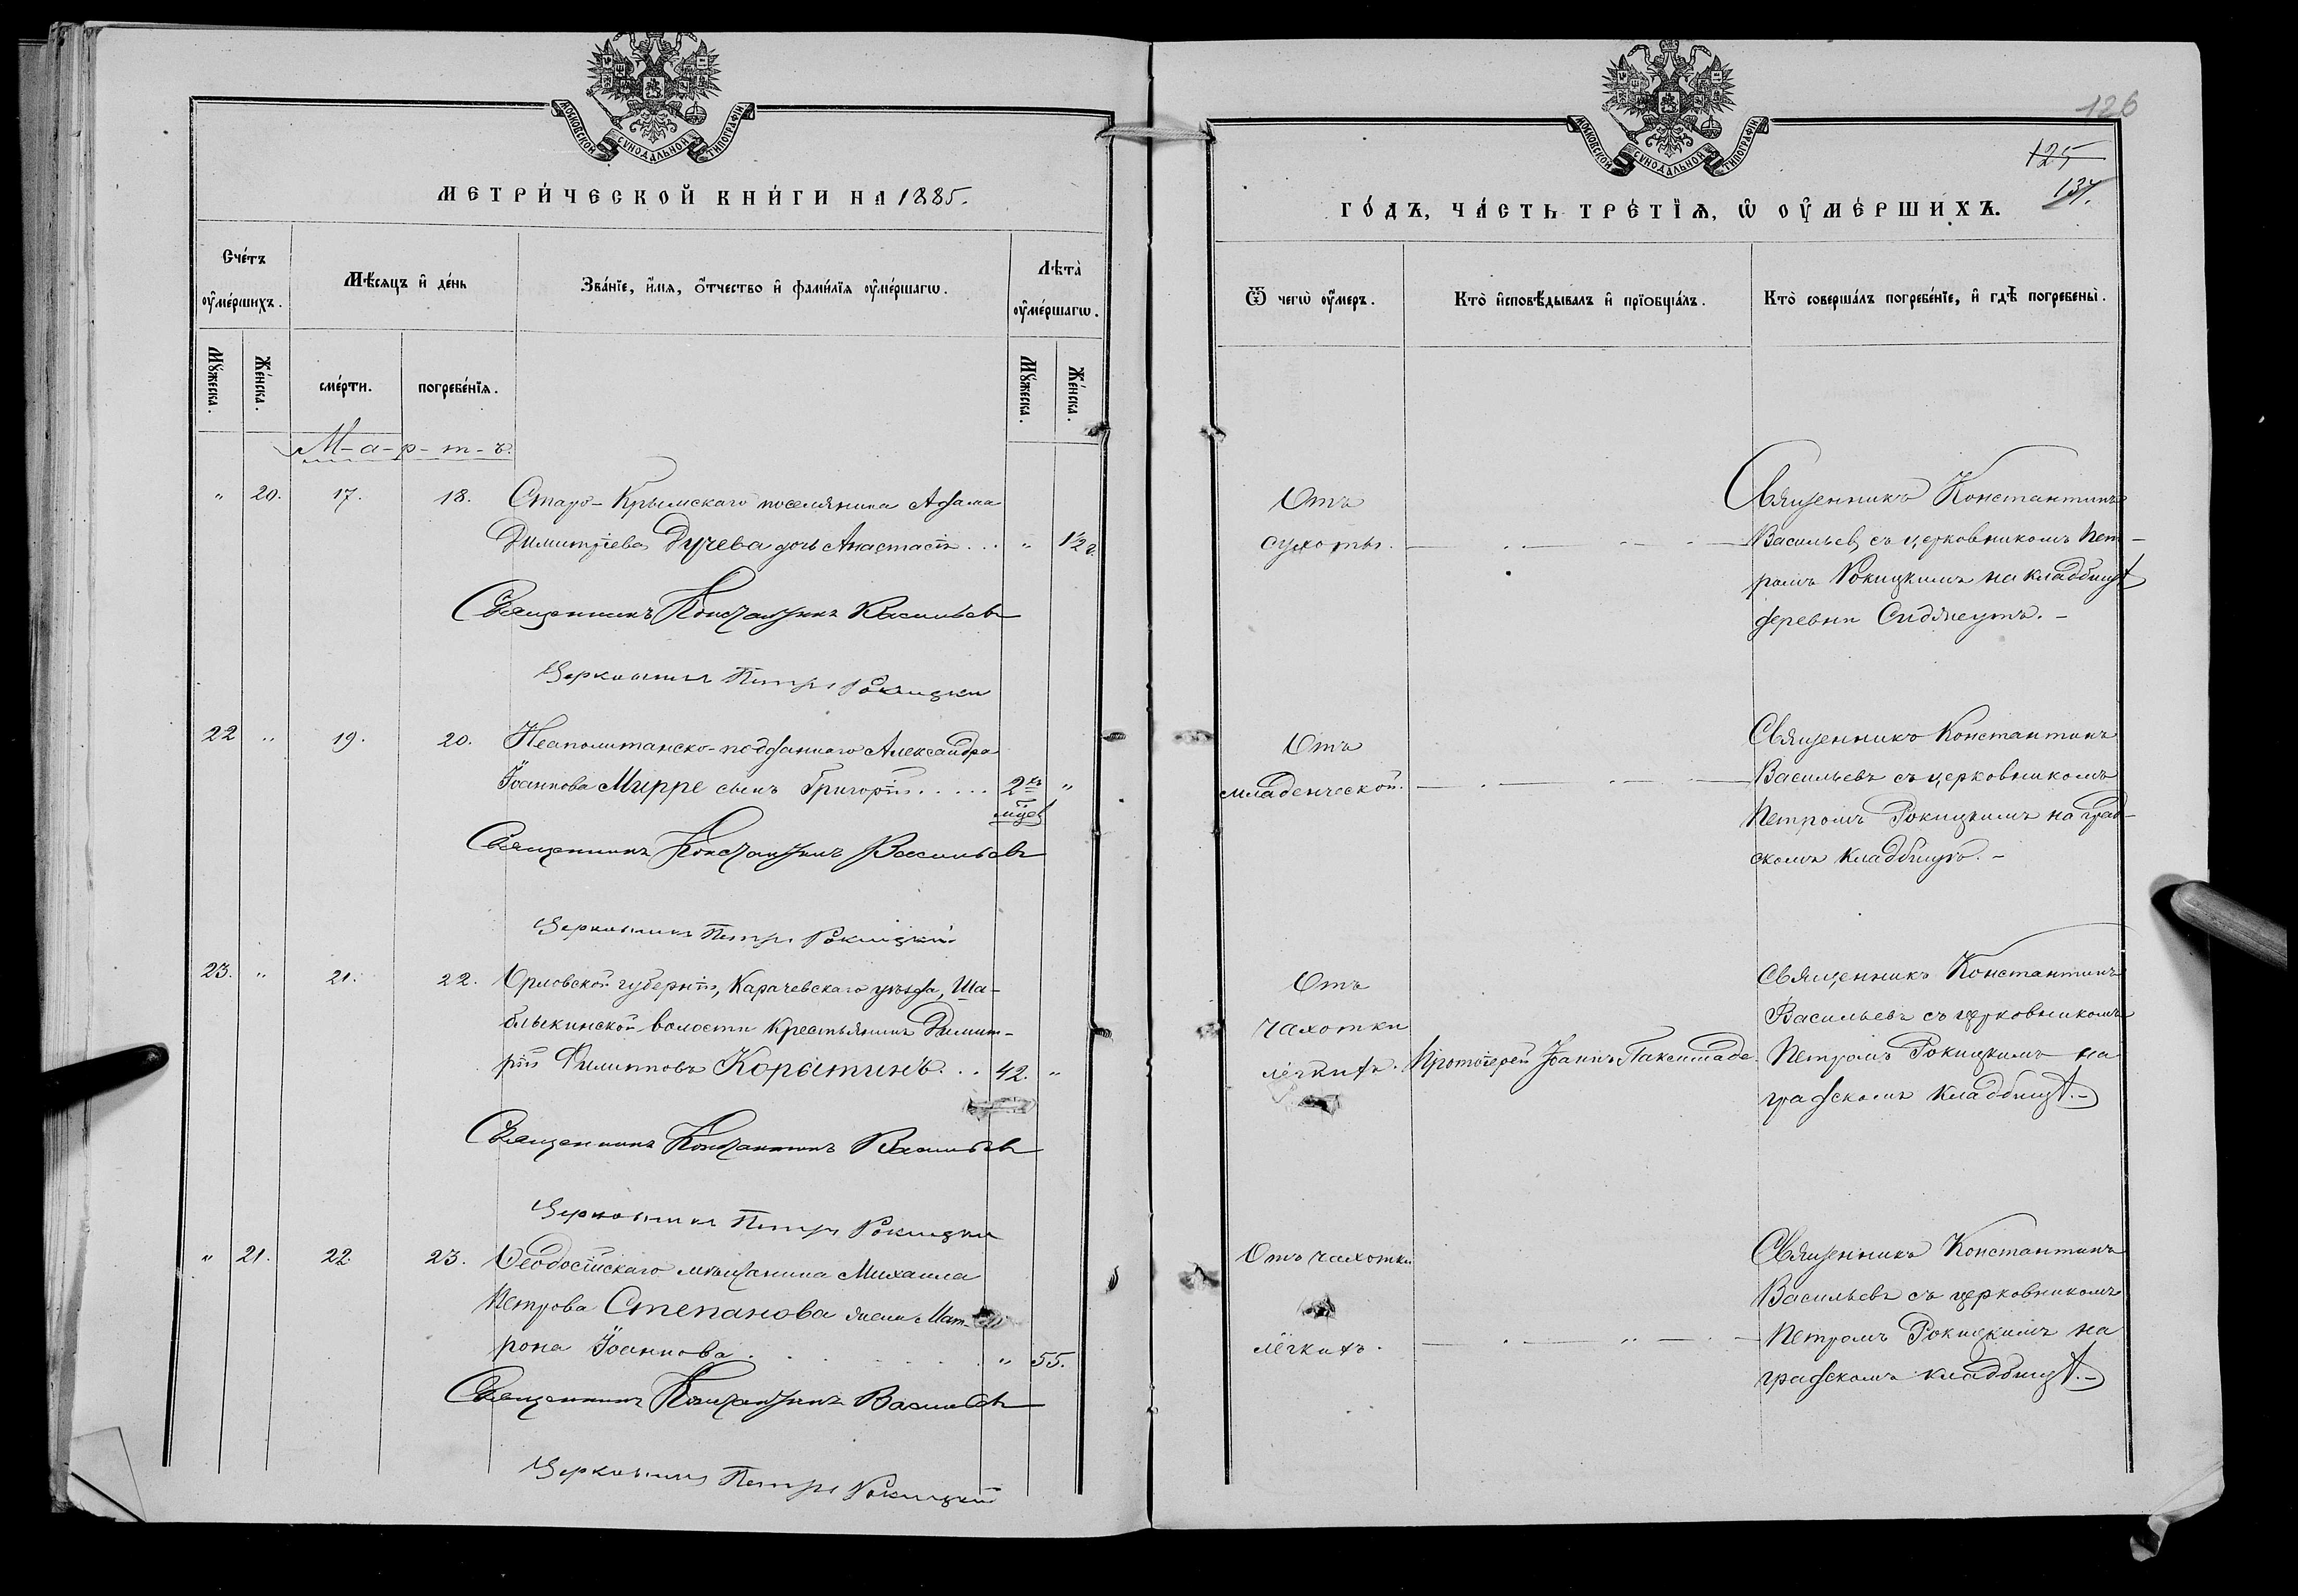 МОСКОВСКОЙ СѴНОДАЛЬНОЙ ТИПОГРАФІИ
МЕТРИ́ЧЕСКОЙ КНИ́ГИ НА 1885.
Сче́тъ оу҆ме́ршихъ.
Мѣ́сяцъ и҆ де́нь
Зва́нїе, и҆́мѧ, ѻ҆́тчество и҆ фами́лїѧ оу҆ме́ршагѡ.
Лѣ́та̀ оу҆ме́ршагѡ.
Мꙋ́жеска.
Же́нска.
сме́рти.
погребе́нїѧ.
Мꙋ́жеска.
Же́нска.
М-а-р-т-ъ.
" 20. 17. 18. Старо-Крымскаго поселянина Адама
Димитріева Дучева дочь Анастасія... " 1½ г.
Священникъ Константинъ Васильевъ
Церковникъ Петръ Рокицкій
22 " 19. 20. Неаполитанско-подданнаго Александра
Іоаннова Мирре сынъ Григорій..... 2хъ "
мцев
Священникъ Константинъ Васильевъ
Церковникъ Петръ Рокицкій
23. " 21. 22. Орловской губерніи, Карачевскаго уѣзда, Ша-
блыкинской волости крестьянинъ Димит-
рій Филипповъ Корытинъ... 42. "
Священникъ Константинъ Васильевъ
Церковникъ Петръ Рокицкій
" 21. 22. 23. Ѳеодосійскаго мѣщанина Михаила
Петрова Степанова жена Мат-
рона Іоаннова. " 55.
Священникъ Константинъ Васильевъ
Церковникъ Петръ Рокицкій
МОСКОВСКОЙ СѴНОДАЛЬНОЙ ТИПОГРАФІИ
126
125
137.
ГО́ДЪ, ЧА́СТЬ ТРЕ́ТЇѦ, Ѡ҆ ОУ҆МЕ́РШИХЪ.
Ѿ чегѡ̀ оу҆́меръ.
Кто̀ и҆сповѣ́дывалъ и҆ прїобща́лъ.
Кто̀ соверша́лъ погребе́нїе, и҆ гдѣ̀ погребены̀.
Отъ
сухоты.
Священникъ Константинъ
Васильевъ съ церковникомъ Пет-
ромъ Рокицкимъ на кладбищѣ
деревни Сиджеутъ.-
Отъ
младенческой.
Священникъ Константинъ
Васильевъ съ церковникомъ
Петромъ Рокицкимъ на град-
скомъ кладбищѣ.-
Отъ
чахотки
лёгкихъ.
Протоіерей Іоаннъ Паксимаде.
Священникъ Константинъ
Васильевъ съ церковникомъ
Петромъ Рокицкимъ на
градскомъ кладбищѣ.-
Отъ чахотки
лёгкихъ.
Священникъ Константинъ
Васильевъ съ церковникомъ
Петромъ Рокицкимъ на
градскомъ кладбищѣ.-